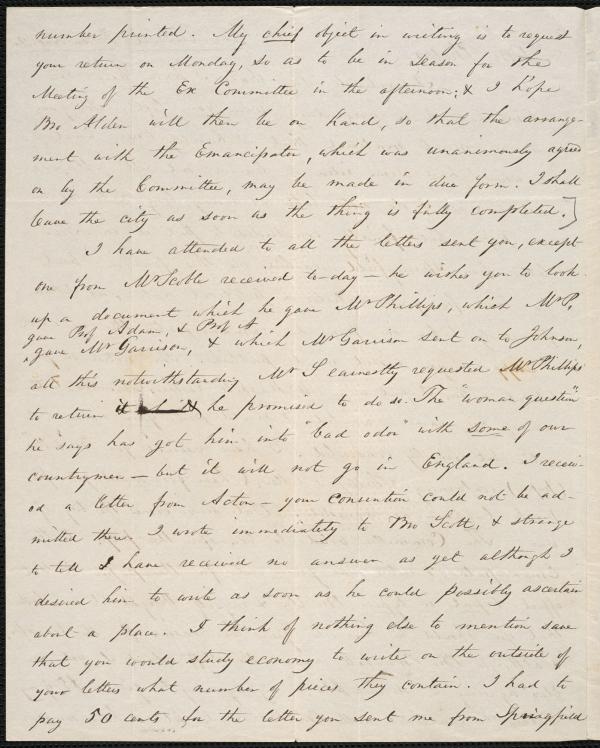 number printed. My chief object in writing is to request
your return on Monday, so as to be in season for the
Meeting of the Ex Committee in the afternoon; & I hope
Bro Alden will then be on hand, so that the arrange-
ment with the Emancipator, which was unanimously agreed
on by the Committee, may be made in due form. I shall
leave the city as soon as the thing is fully completed.]
I have attended to all the letters sent you, except
one from Mr Scoble received to-day — he wishes you to look
up a document which he gave Mr Phillips, which Mr P.
gave Prof Adam, & Prof A
^ gave Mr Garrison, & which Mr Garrison sent on to Johnson,
all this notwithstanding Mr S earnestly requested Mr Phillips
to return it he promised to do so. The "woman question"
he says has got him into "bad odor" with some of our
countrymen — but it will not go in England. I receiv-
ed a letter from Acton — your convention could not be ad-
mitted there. I wrote immediately to Bro Scott, & strange
to tell I have received no answer as yet although I
desired him to write as soon as he could possibly ascertain
about a place. I think of nothing else to mention save
that you would study economy to write on the outside of
your letters what number of pieces they contain. I had to
pay 50 cents for the letter you sent me from Springfield